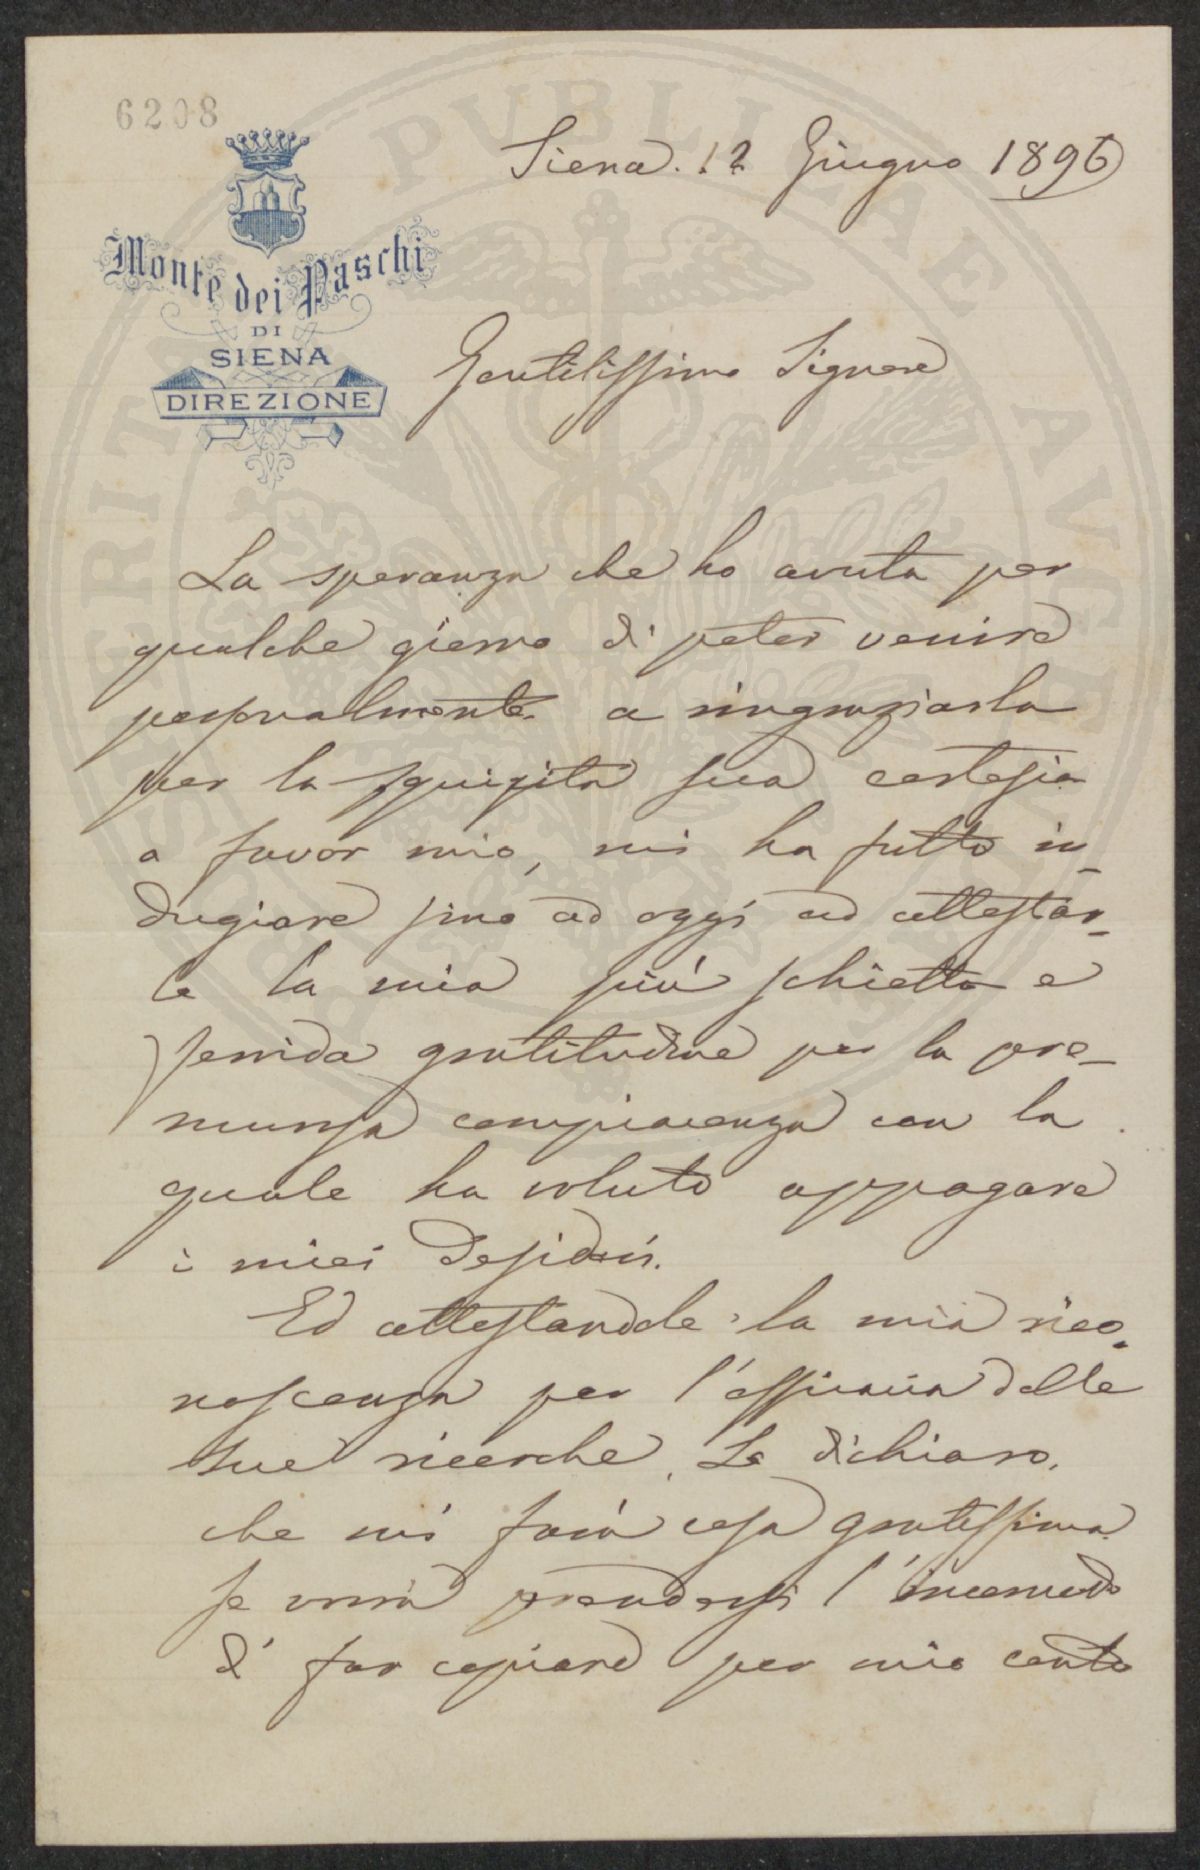 6208
Siena. 12 Giugno 1896
Monte dei Paschi
DI
SIENA
DIREZIONE
Gentilissimo Signore
La speranza che ho avuta per
qualche giorno di poter venire
personalmente a ringraziarla
per la squisita sua cortesia
a favor mio, mi ha fatto in-
dugiare sino ad oggi ad attestar-
le la mia più schietta e
fervida gratitudine per la pre-
murosa compiacenza con la
quale ha voluto appagare
i miei desideri.
Ed attestandole la mia rico-
noscenza per l'efficacia delle
sue ricerche, Le dichiaro,
che mi farà cosa gratissima
se vorrà prendersi l'incomodo
di far copiare per mio conto
PROSPERITATI PVBLICAE AVGENDAE